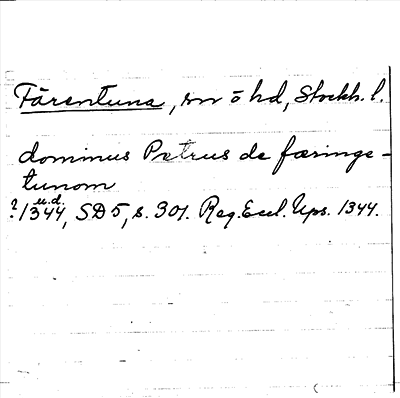 Färentuna, sn ö hd, Stockh. l.
dominus Petrus de færinge-
tunom
? 1344 u.d., SD 5, s. 301. Reg. Eccl. Ups. 1344.